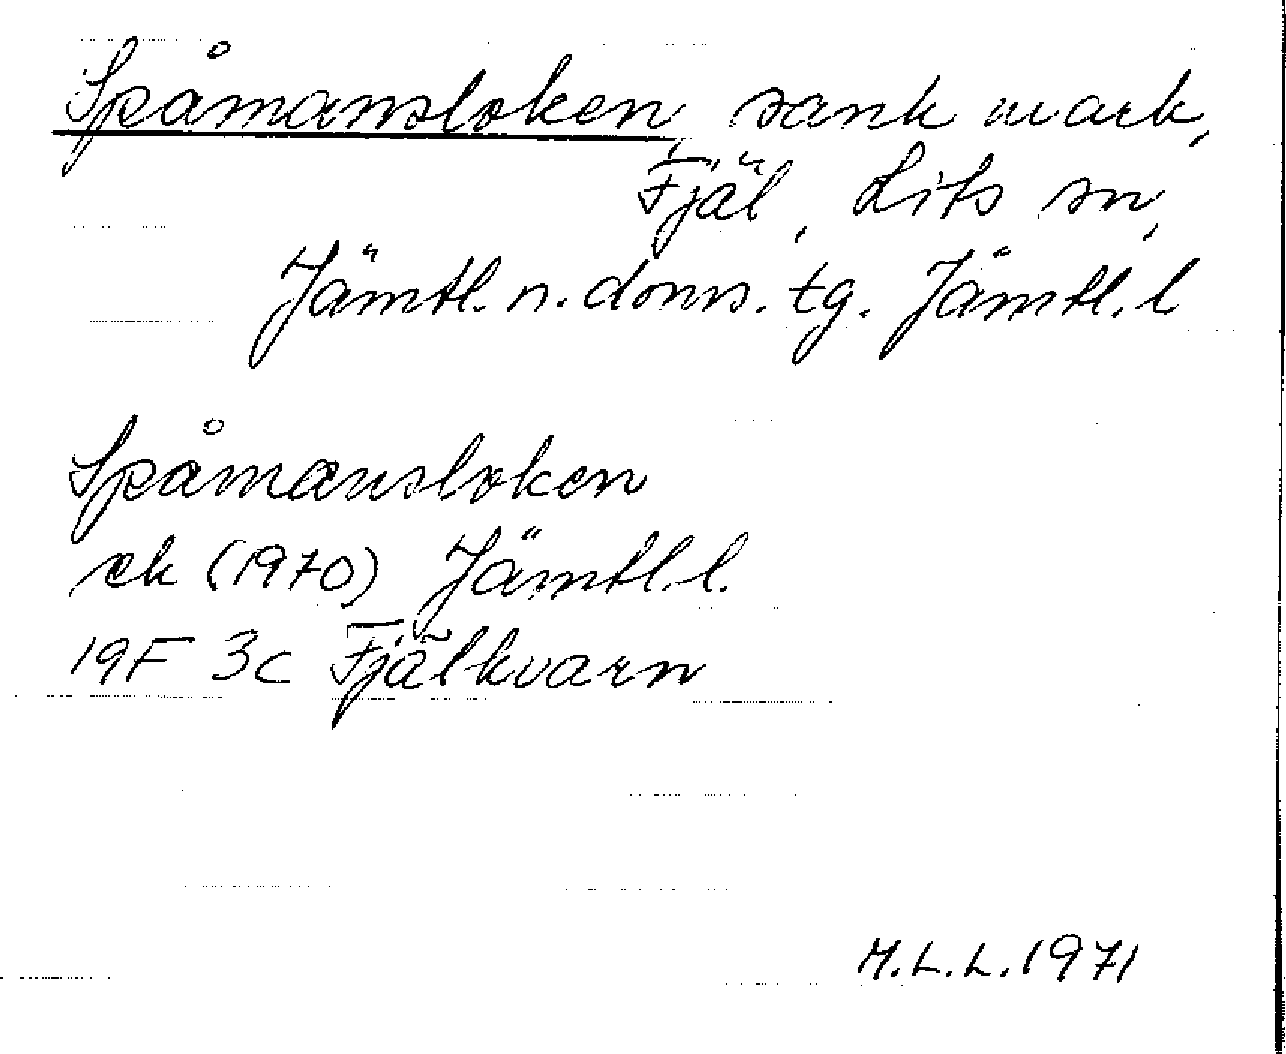 Spåmansloken, sank mark,
Fjäl, Lits sn,
Jämtl. n. doms. tg. Jämtl. l
Spåmansloken
ek (1970) Jämtl. l.
19F 3c Fjälkvarn
M.L.L. 1971